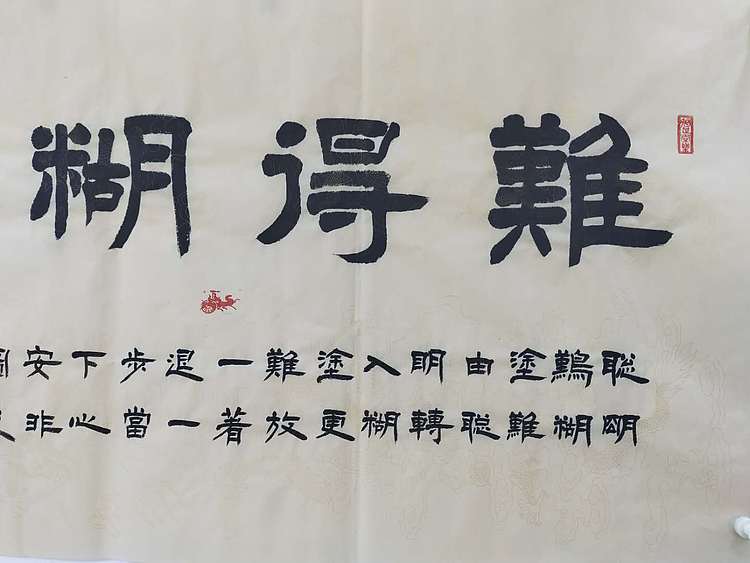 難得糊
聰明
難糊
塗難
由聰
明轉
入糊
塗更
難放
一著
退一
步當
下心
安非